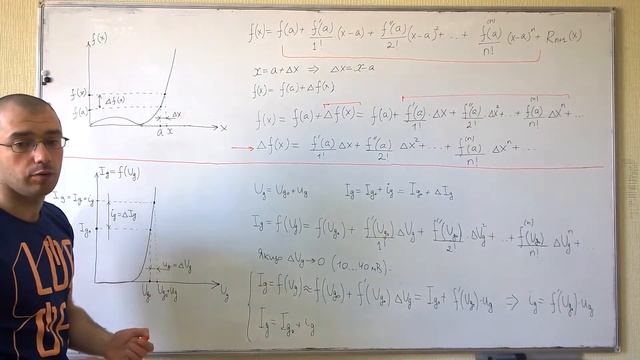 f(x)
f(x) = f(a) + f'(a)/1! (x-a) + f''(a)/2! (x-a)² + ... + f⁽ⁿ⁾(a)/n! (x-a)ⁿ + Rₙ₊₁(x)
x = a + Δx ⇒ Δx = x-a
f(x) = f(a) + Δf(x)
f(x)
Δf(x)
f(a)
Δx
a x
x
f(x) = f(a) + Δf(x) = f(a) + f'(a)/1! · Δx + f''(a)/2! · Δx² + ... + f⁽ⁿ⁾(a)/n! Δxⁿ + ...
Δf(x) = f'(a)/1! Δx + f''(a)/2! Δx² + ... + f⁽ⁿ⁾(a)/n! Δxⁿ + ...
I_g = f(U_g)
I_g = I_g₀ + i_g
i_g = ΔI_g
I_g₀
u_g = ΔU_g
U_g₀ U_g₀+u_g
U_g
U_g = U_g₀ + u_g I_g = I_g₀ + i_g = I_g₀ + ΔI_g
I_g = f(U_g) = f(U_g₀) + f'(U_g₀)/1! ΔU_g + f''(U_g₀)/2! ΔU_g² + ... + f⁽ⁿ⁾(U_g₀)/n! ΔU_gⁿ + ...
Якщо ΔU_g → 0 (10...40 мВ).
I_g = f(U_g) ≈ f(U_g₀) + f'(U_g₀) ΔU_g = I_g₀ + f'(U_g₀) · u_g ⇒ i_g = f'(U_g₀) · u_g
I_g = I_g₀ + i_g